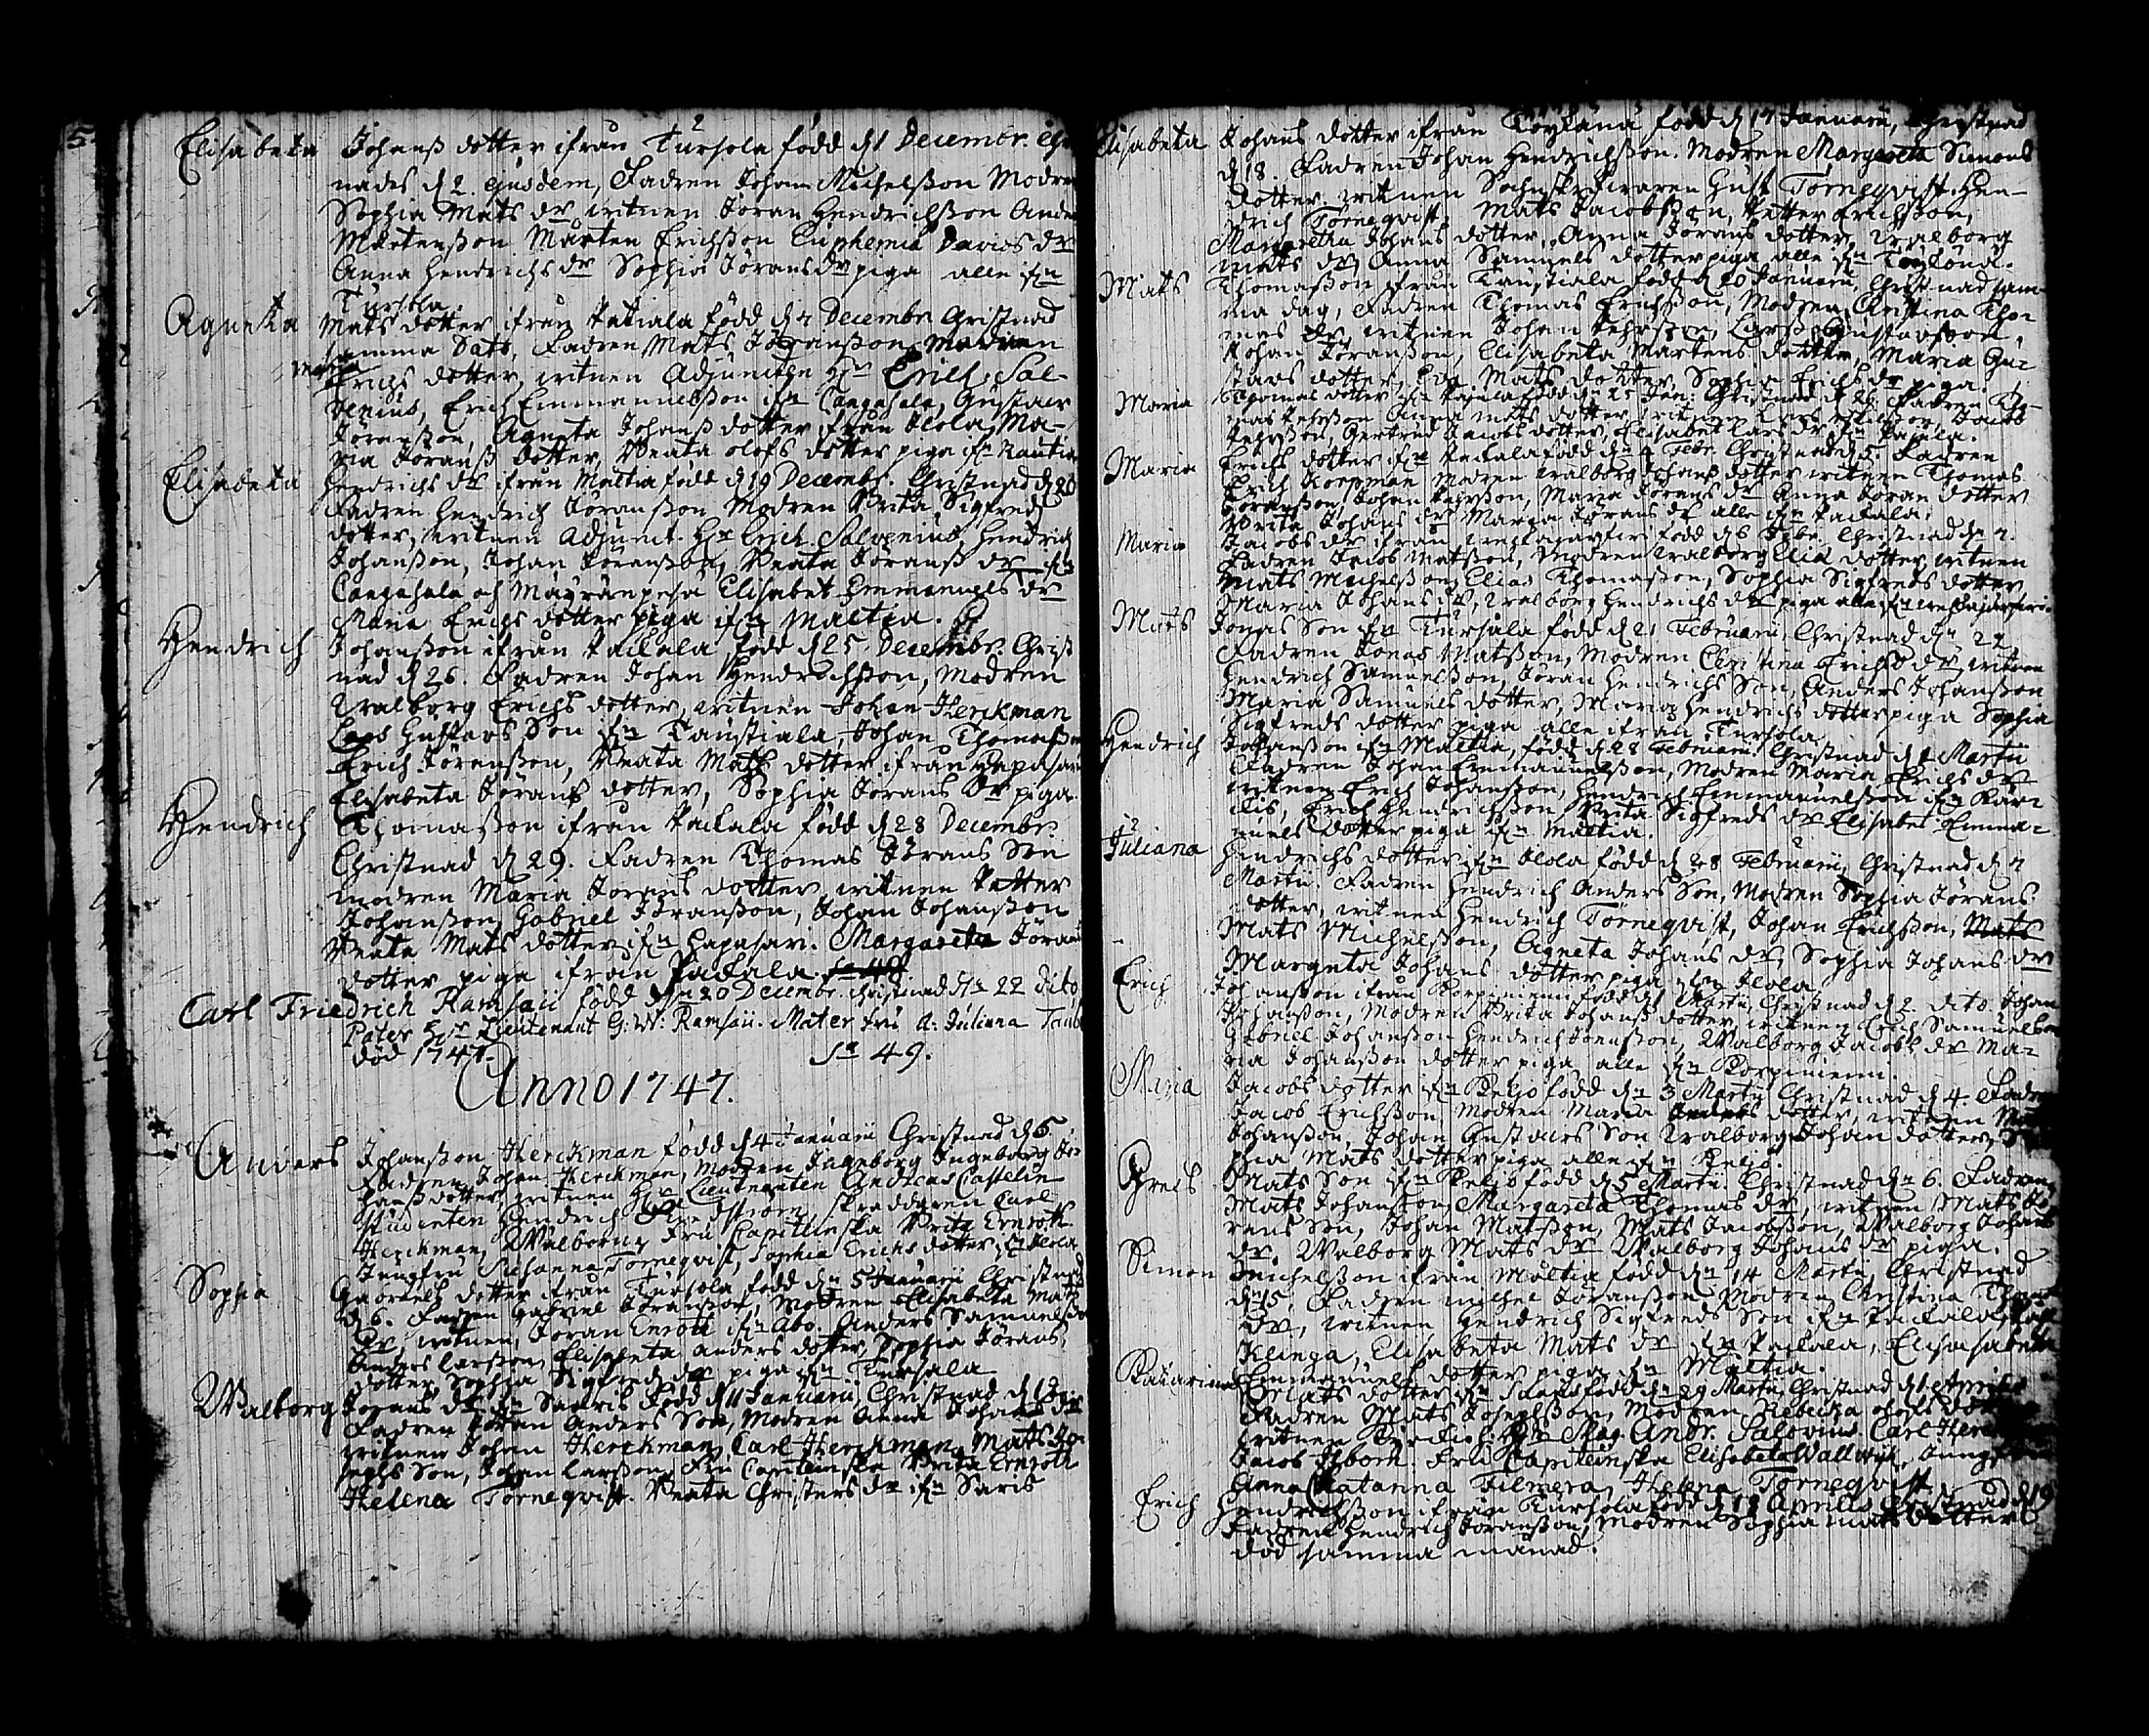 Elisabeta Johanß dotter ifrån Tursola född d 1 Decembr.
nades d 2. ejusdem, Fadren Johan Michelßon Modren
Sophia Mats dr witnen Jöran Hendrichßon Anders
Mårtenßon Mårten Erichßon Euphemia Davids dr
Anna Hendrichs dr Sophia Jörans dr piga alle ifn
Tursola.
Agneta Mats dotter ifrån Packala född d 7 Decembr Christnad
samma Dato, Fadren Mats Jöranßon Modren
Maria
Erichs dotter, witnen Adjuncten Hr Erich Sal-
venius, Erich Emmanuelßon ifn Cangahala, Gustaer
Jöranßon, Agneta Johanß dotter ifrån Ilola, Ma-
ria Jöranß dotter, Beata olofs dotter piga ifn Rautia
Elisabeta Hendrichs dr ifrån Maltia född d 19 Decembr. Christnad d 20
Fadren Hendrich Jöranßon Modren Brita Sigfreds
dotter, witnen Adjunct. Hr Erich Salvenius, Hendrich
Johanßon, Johan Jöranßon, Beata Jöranß dr ifn
Cangahala och Mäyränpesa Elisabet Emmanuels dr
Maria Erichs dotter piga ifn Maltia.
Hendrich Johanßon ifrån Packala född d 25 Decembr. Christ
nad d 26. Fadren Johan Hendrichßon, Modren
Walborg Erichs dotter, witnen Johan Herckman
Lars Gustavs Son ifn Taustiala, Johan Thomaßon
Erich Jöranßon, Beata Mats dotter ifrån Hapasari
Elisabeta Jörans dotter, Sophia Jörans dr piga.
Hendrich Thomaßon ifrån Packala född d 28 Decembr.
Christnad d 29. Fadren Thomas Jörans Son
modren Maria Jörans dotter, witnen Petter
Johanßon, Gabriel Jöranßon, Johan Johanßon
Beata Mats dotter ifn Hapasari. Margareta Jörans
dotter piga ifrån Packala. Sa 48
Carl Friedrich Ramsaii född dn 20 Decembr. christnad dn 22 dito,
Pater Hr Lieutenant G: W: Ramsaii. Mater fru A: Juliana Taube
död 1747. Sa 49.
Anno 1747.
Anders Johanßon Herckman född d 4 Januarii Christnad d 5
Fadren Johan Herckman, Modren Ingeborg Ingeborg Jo-
hanß dotter, witnen Hr Lieutnanten Andreas Castelin
studenten Hendrich skräddaren Carl
Herckman, Walborny Fru Capitleinska Brita Ernroth
Jungfru Susanna Törneqvist, Sophia Erichs dotter ifn Ilola
Sophia Gabriels dotter ifrån Tursola född dn 5 Januarii Christnad
d 6. Fadren Gabriel Jöranßon, Modren Elisabeta Mats
dr, witnen, Jöran Enrott ifn Åbo. Anders Samuelßon
Anders Larßon, Elisabeta Anders dotter, Sophia Jörans
dotter, Sophia Sigfreds dr piga ifn Tursala
Walborg Jörans dr ifn Saaris född d 11 Januarii, Christnad d 12
Fadren Jöran Anders Son, Modren Anna Johans dr
witnen Johan Herckman, Carl Herckman, Mats Jo-
sephs Son, Johan Larßon, Fru Capitleinska Brita Ernroth
Helena Törneqvist. Beata Christers dr ifn Saris
Elisabeta Johans dotter ifrån Töylänä född d 17 Januarii, Christnad
d 18. Fadren Johan Hendrichßon. Modren Margareta Simons
dotter, witnen Sochnskrifwaren Gust Törneqvist, Hen-
drich Törneqvist, Mats Jacobßon, Petter Erichßon,
Margaretha Johans dotter, Anna Jörans dotter, Walborg
Mats dr, Anna Samuels dotter piga, alle ifn Töylönä.
Mats Thomaßon ifrån Taustiala född d 20 Januarii, Christnad sam-
ma dag, Fadren Thomas Erichßon, Modren Christina Tho-
mas dr witnen Johan Pehrßon, Larß Gustavßon,
Johan Jöranßon, Elisabeta Mårtens dotter, Maria Gu-
stavs dotter, Eva Mats dotter, Sophia Erichs dr piga.
Maria Thomas dotter ifn Packala född d 25 Jan: Christnad d 26. Fadren Tho-
mas Pehrßon Anna Mats dotter, witnen Lars, Jacob
Pehrßon, Gertrud Jacobs dotter, Elisabet Lars dr ifn Packala.
Maria Erichs dotter ifn Packala född dn 4 Febr. Christnad d 5. Fadren
Erich Korpman Modren Walborg Johans dotter witnen Thomas
Jöranßon, Johan Pehrßon, Maria Jörans dr Anna Jöran dotter
Brita Johans dr Maria Jörans dr alle ifn Packala.
Maria Jacobs dr ifrån född d 6 Febr. Christnad d 7.
Fadren Jacob Matsßon, Modren Walborg Eliæ dotter, witnen
Mats Michelßon, Elias Thomaßon, Sophia Sigfreds dotter
Maria Johans dr, Walborg Hendrichs dr piga alle ifn
Mats Jonas Son ifn Tursala född d 21 Februarii, Christnad dn 22
Fadren Jonas Matsßon, Modren Christina Erichs dr, witnen
Hendrich Samuelßon, Jöran Hendrichs Son, Anders Johanßon
Maria Samuels dotter, Maria Hendrichs dotter piga Sophia
Sigfreds dotter piga alle ifrån Tursola
Hendrich Johanßon ifn Maltia, född d 28 Februarii Christnad d 1 Martii
Fadren Johan Emmanuelßon, Modren Maria Erichs dr
witnen Erich Johanßon, Hendrich Emmanuelßon ifn Kari-
lis, Erich Hendrichßon, Brita Sigfreds dr Elisabet Emma-
nuels dotter piga ifn Maltia.
Juliana Hendrichs dotter ifn Ilola född d 28 Februarii, Christnad d 7
Martii. Fadren Hendrich Anders Son, Modren Sophia Jörans
dotter, witnen Hendrich Törneqvist, Johan Erichßon, Mats
Mats Michelßon, Agneta Johans dr, Sophia Johans dr
Margeta Johans dotter piga ifn Ilola.
Erich Johanßon ifrån Korpinieni född d 1 Martii, Christnad d 2. dito Johan
Johanßon, Modren Brita Johanß dotter, witnen Erich Samuelßon
Gabriel Johanßon Hendrich Jöranßon, Walborg Jacobs dr Ma-
ria Johanßon dotter piga alle ifn Korpinieni.
Maria Jacobs dotter ifn Peljo född dn 3 Martii Christnad d 4. Fadren
Jacob Erichßon, Modren Maria Anders dotter, witnen
Johanßon, Johan Gustaves Son Walborg Johan dotter, So-
phia Mats dotter piga alle ifn Peljo.
Grels Mats Son ifn Peljo född d 5 Martii. Christnad dn 6. Fadren
Mats Johanßon, Margareta Thomas dr, witnen Mats Jö-
rans Son, Johan Matsßon, Mats Jacobßon, Walborg Johans
dr. Walborg Mats dr Walborg Johans dr piga.
Simon Michelßon ifrån Maltia född dn 14 Martii, Christnad
dn 15, Fadren Michel Jöranßon Modren Christina Thomas
dr, witnen Hendrich Sigfreds Son ifn Packala,
Klinga, Elisabeta Mats dr ifn Packala, Elisasabeta
Emmanuels dotter piga ifn Maltia.
Katarina Mats dotter ifn född dn 29 Martii, Christnad d 1 Aprilis
Fadren Mats Josephßon, Modren Rebecka olofs dotter
witnen Hr Mag. Andr. Salovius, Carl Herckman
Jacob Isborn. Fru Capitleinska Elisabeta Wallwijk, Jungfru
Anna Catarina Filmera, Helena Törneqvist.
Erich Hendrichßon ifrån Tursola född d 18 Aprilis Christnad d 19
Fadren Hendrich Jöranßon, Modren Sophia Mats dotter
död samma månad.